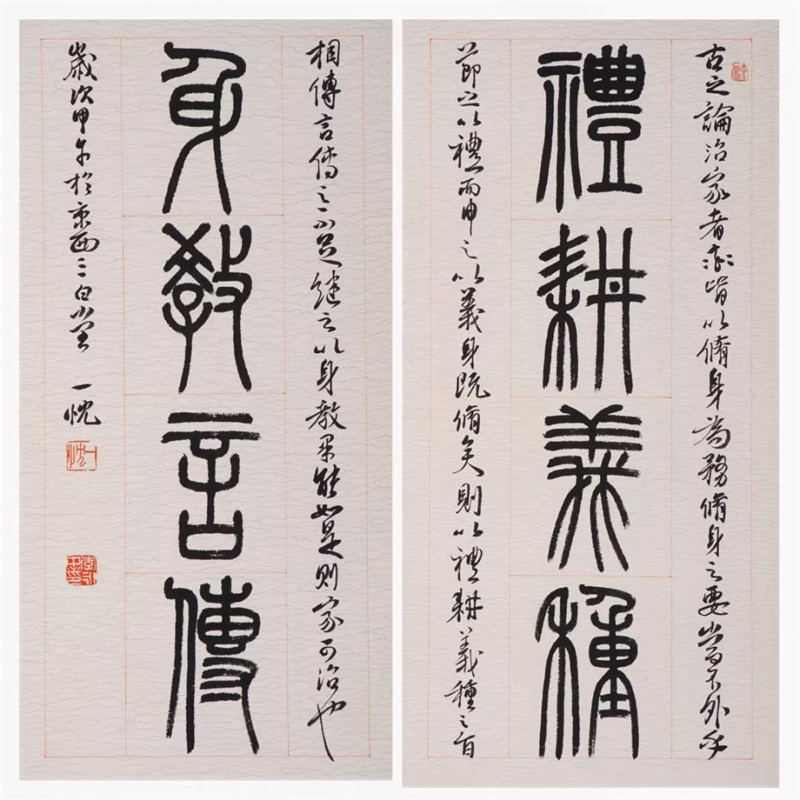 古之論治家者率皆以脩身為務脩身之要當不外乎
禮耕義種
節之以禮而申之以義身既脩矣則以禮耕義種之旨
相傳言傳之不足繼之以身教果能如是則家可治也
身教言傳
歲次甲午於京西三白堂 一忱